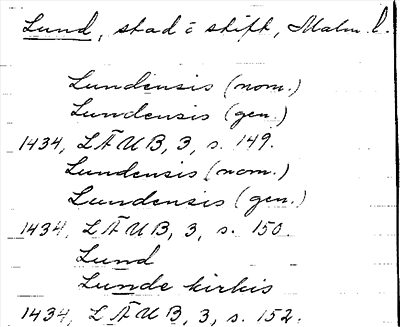 Lund, stad o stift, Malm. l.
Lundensis (nom.)
Lundensis (gen.)
1434, LÄUB, 3, s. 149.
Lundensis (nom.)
Lundensis (gen.)
1434, LÄUB, 3, s. 150.
Lund
Lunde kirkis
1434, LÄUB, 3, s. 152.